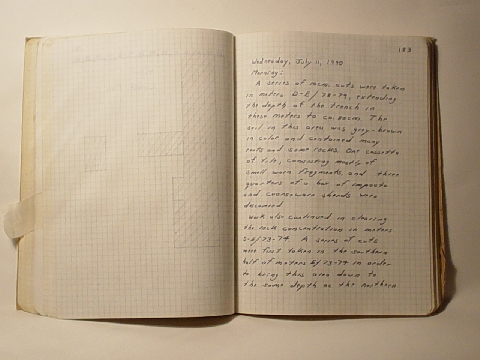 183
Wednesday, July 11, 1990
Morning:
A series of 10cm. cuts were taken
in meters D-E/78-79, extending
the depth of the trench in
these meters to ca. 80cms. The
soil in this area was grey-brown
in color and contained many
roots and some rocks. One cassetta
of tile, consisting mostly of
small worn fragments, and three
quarters of a bar of impasto
and coarseware sherds were
discovered.
Work also continued in clearing
the rock concentration in meters
/73-74. A series of cuts
were first taken in the southern
half of meters E/73-74 in order
to bring this area down to
the same depth as the northern